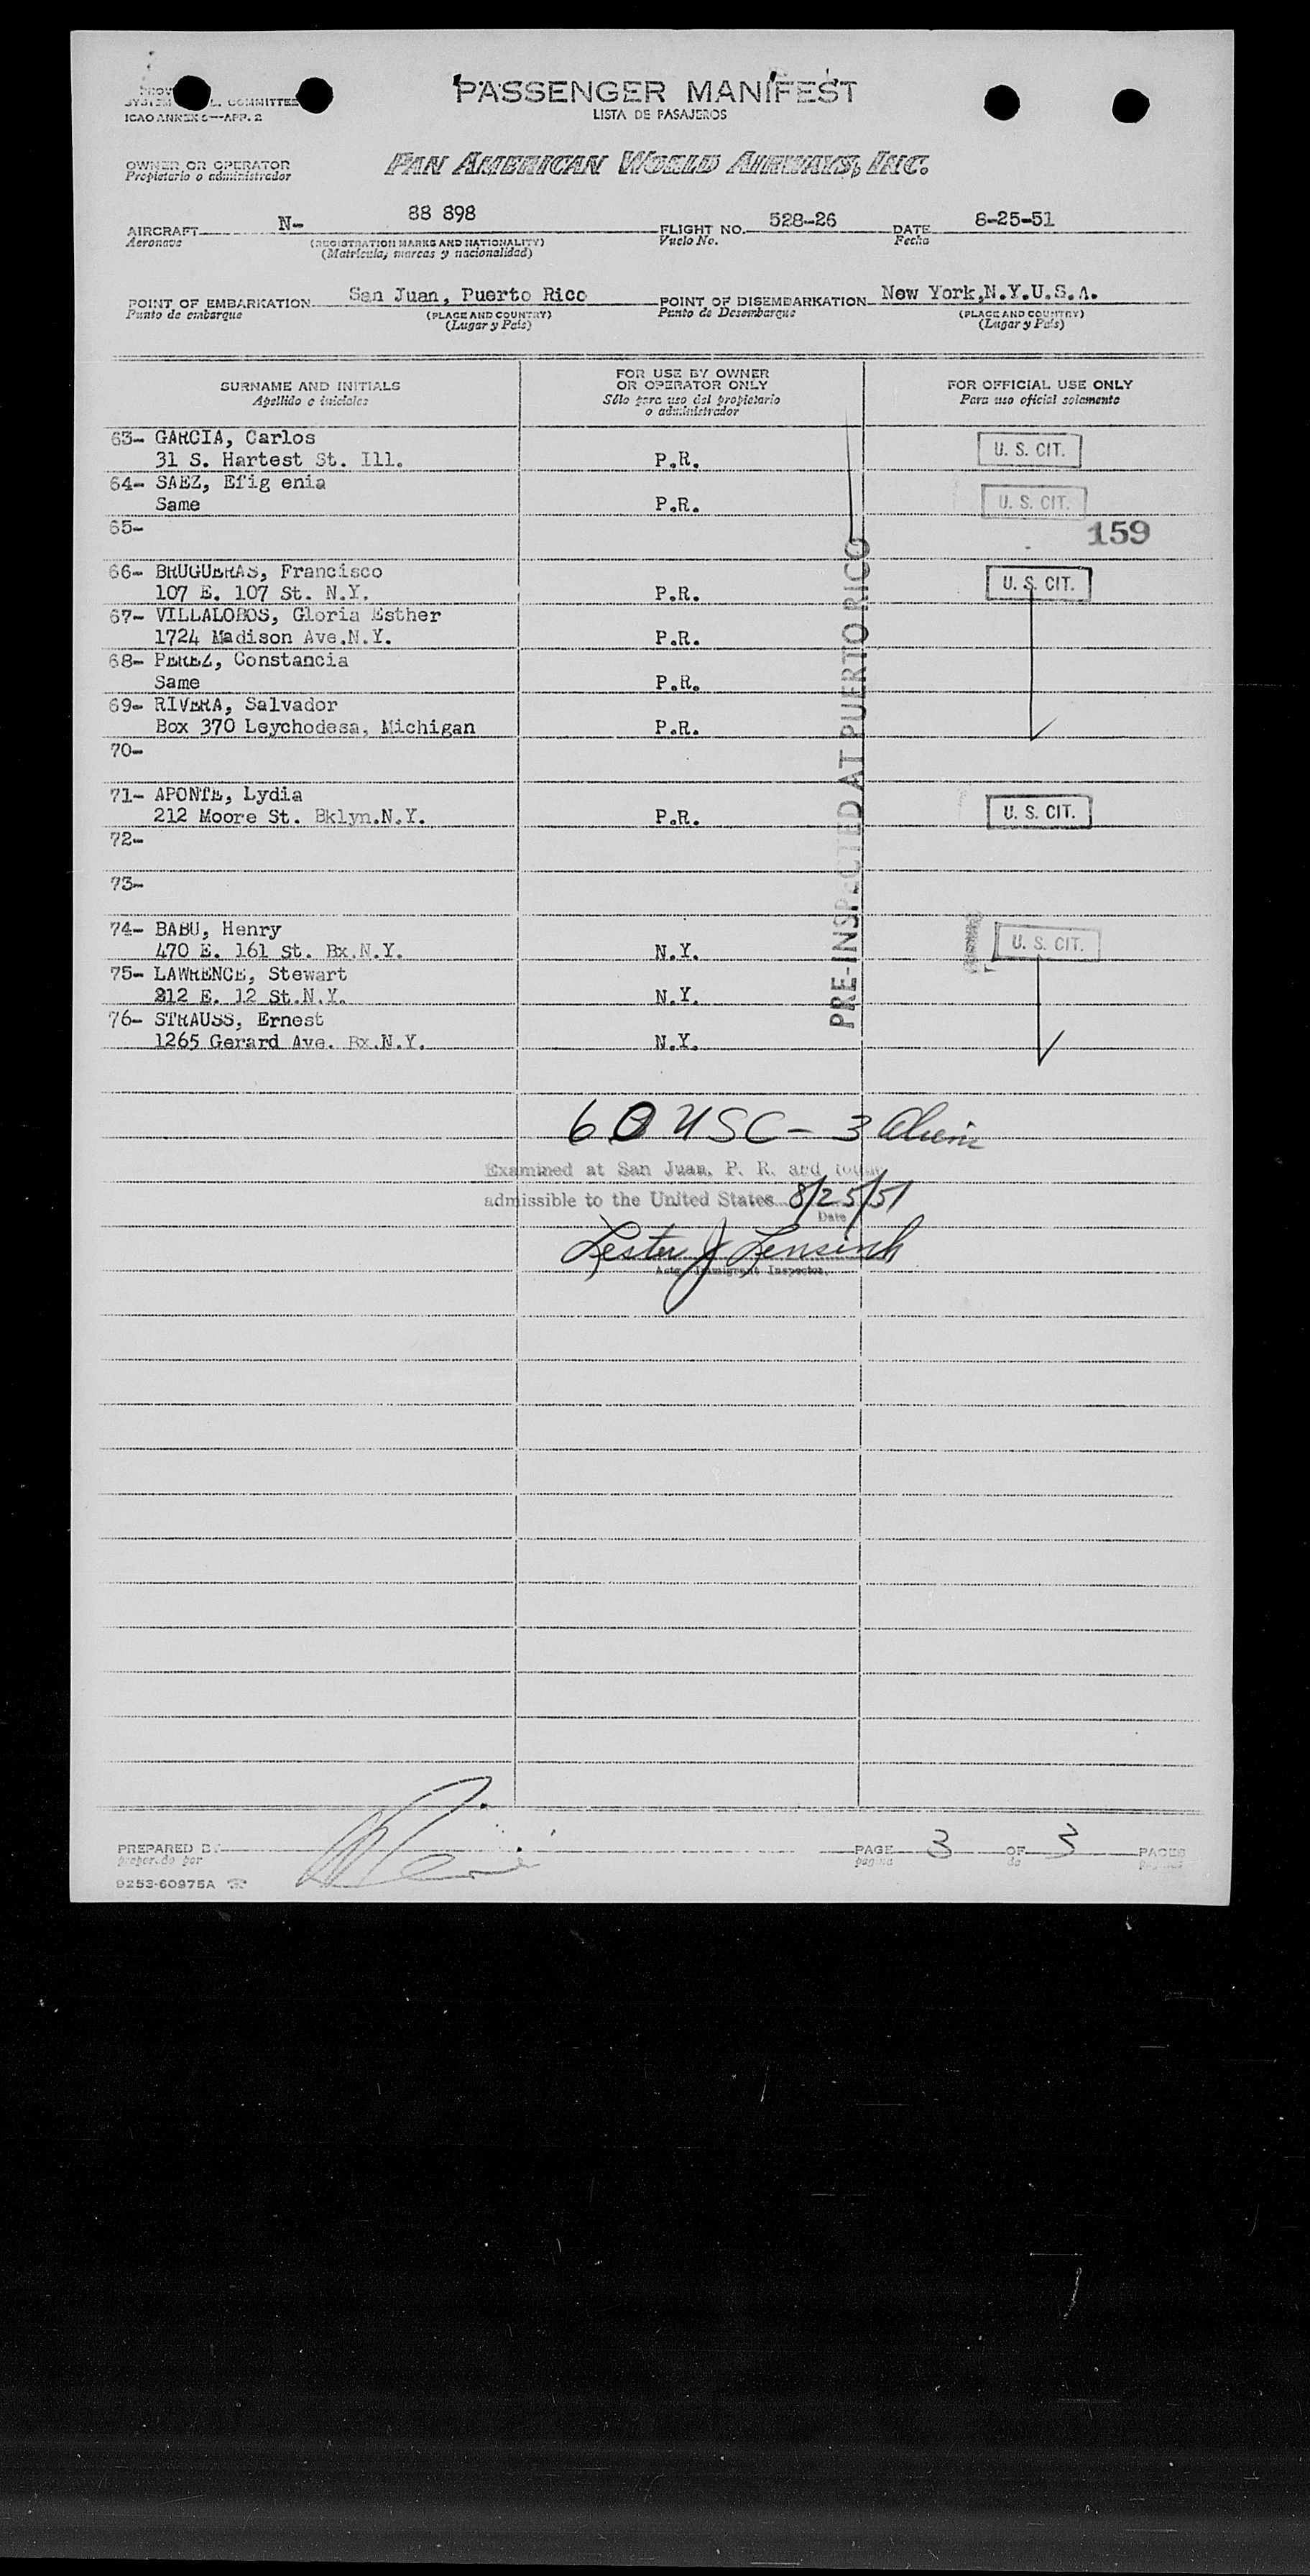 PASSENGER MANIFEST
LISTA DE PASAJEROS
COMMITTEE
ICAO ANNEX 9—APP. 2
OWNER OR OPERATOR
Propietario o administrador
PAN AMERICAN WORLD AIRWAYS, INC.
AIRCRAFT N- 88 898 FLIGHT NO. 528-26 DATE 8-25-51
Aeronave (REGISTRATION MARKS AND NATIONALITY) Vuelo No. Fecha
(Matrícula, marcas y nacionalidad)
POINT OF EMBARKATION San Juan, Puerto Rico POINT OF DISEMBARKATION New York,N.Y.U.S.A.
Punto de embarque (PLACE AND COUNTRY) Punto de Desembarque (PLACE AND COUNTRY)
(Lugar y País) (Lugar y País)
SURNAME AND INITIALS
Apellido e iniciales
FOR USE BY OWNER
OR OPERATOR ONLY
Sólo para uso del propietario
o administrador
FOR OFFICIAL USE ONLY
Para uso oficial solamente
63- GARCIA, Carlos U. S. CIT.
31 S. Hartest St. Ill. P.R.
64- SAEZ, Efig enia U. S. CIT.
Same P.R.
65- 159
66- BRUGUERAS, Francisco U. S. CIT.
107 E. 107 St. N.Y. P.R.
67- VILLALOBOS, Gloria Esther
1724 Madison Ave.N.Y. P.R.
68- PEREZ, Constancia
Same P.R.
69- RIVERA, Salvador
Box 370 Leychodesa, Michigan P.R.
70-
71- APONTE, Lydia U. S. CIT.
212 Moore St. Bklyn.N.Y. P.R.
72-
73-
74- BABU, Henry U. S. CIT.
470 E. 161 St. Bx.N.Y. N.Y.
75- LAWRENCE, Stewart
212 E. 12 St.N.Y. N.Y.
76- STRAUSS, Ernest
1265 Gerard Ave. Bx.N.Y. N.Y.
PRE-INSPECTED AT PUERTO RICO
60 USC - 3 Alien
Examined at San Juan, P. R. and found
admissible to the United States 8/25/51
Date
Lester J Lensink
Actg. Immigrant Inspector.
PREPARED BY PAGE 3 OF 3 PAGES
preparado por página de
9253-60975A